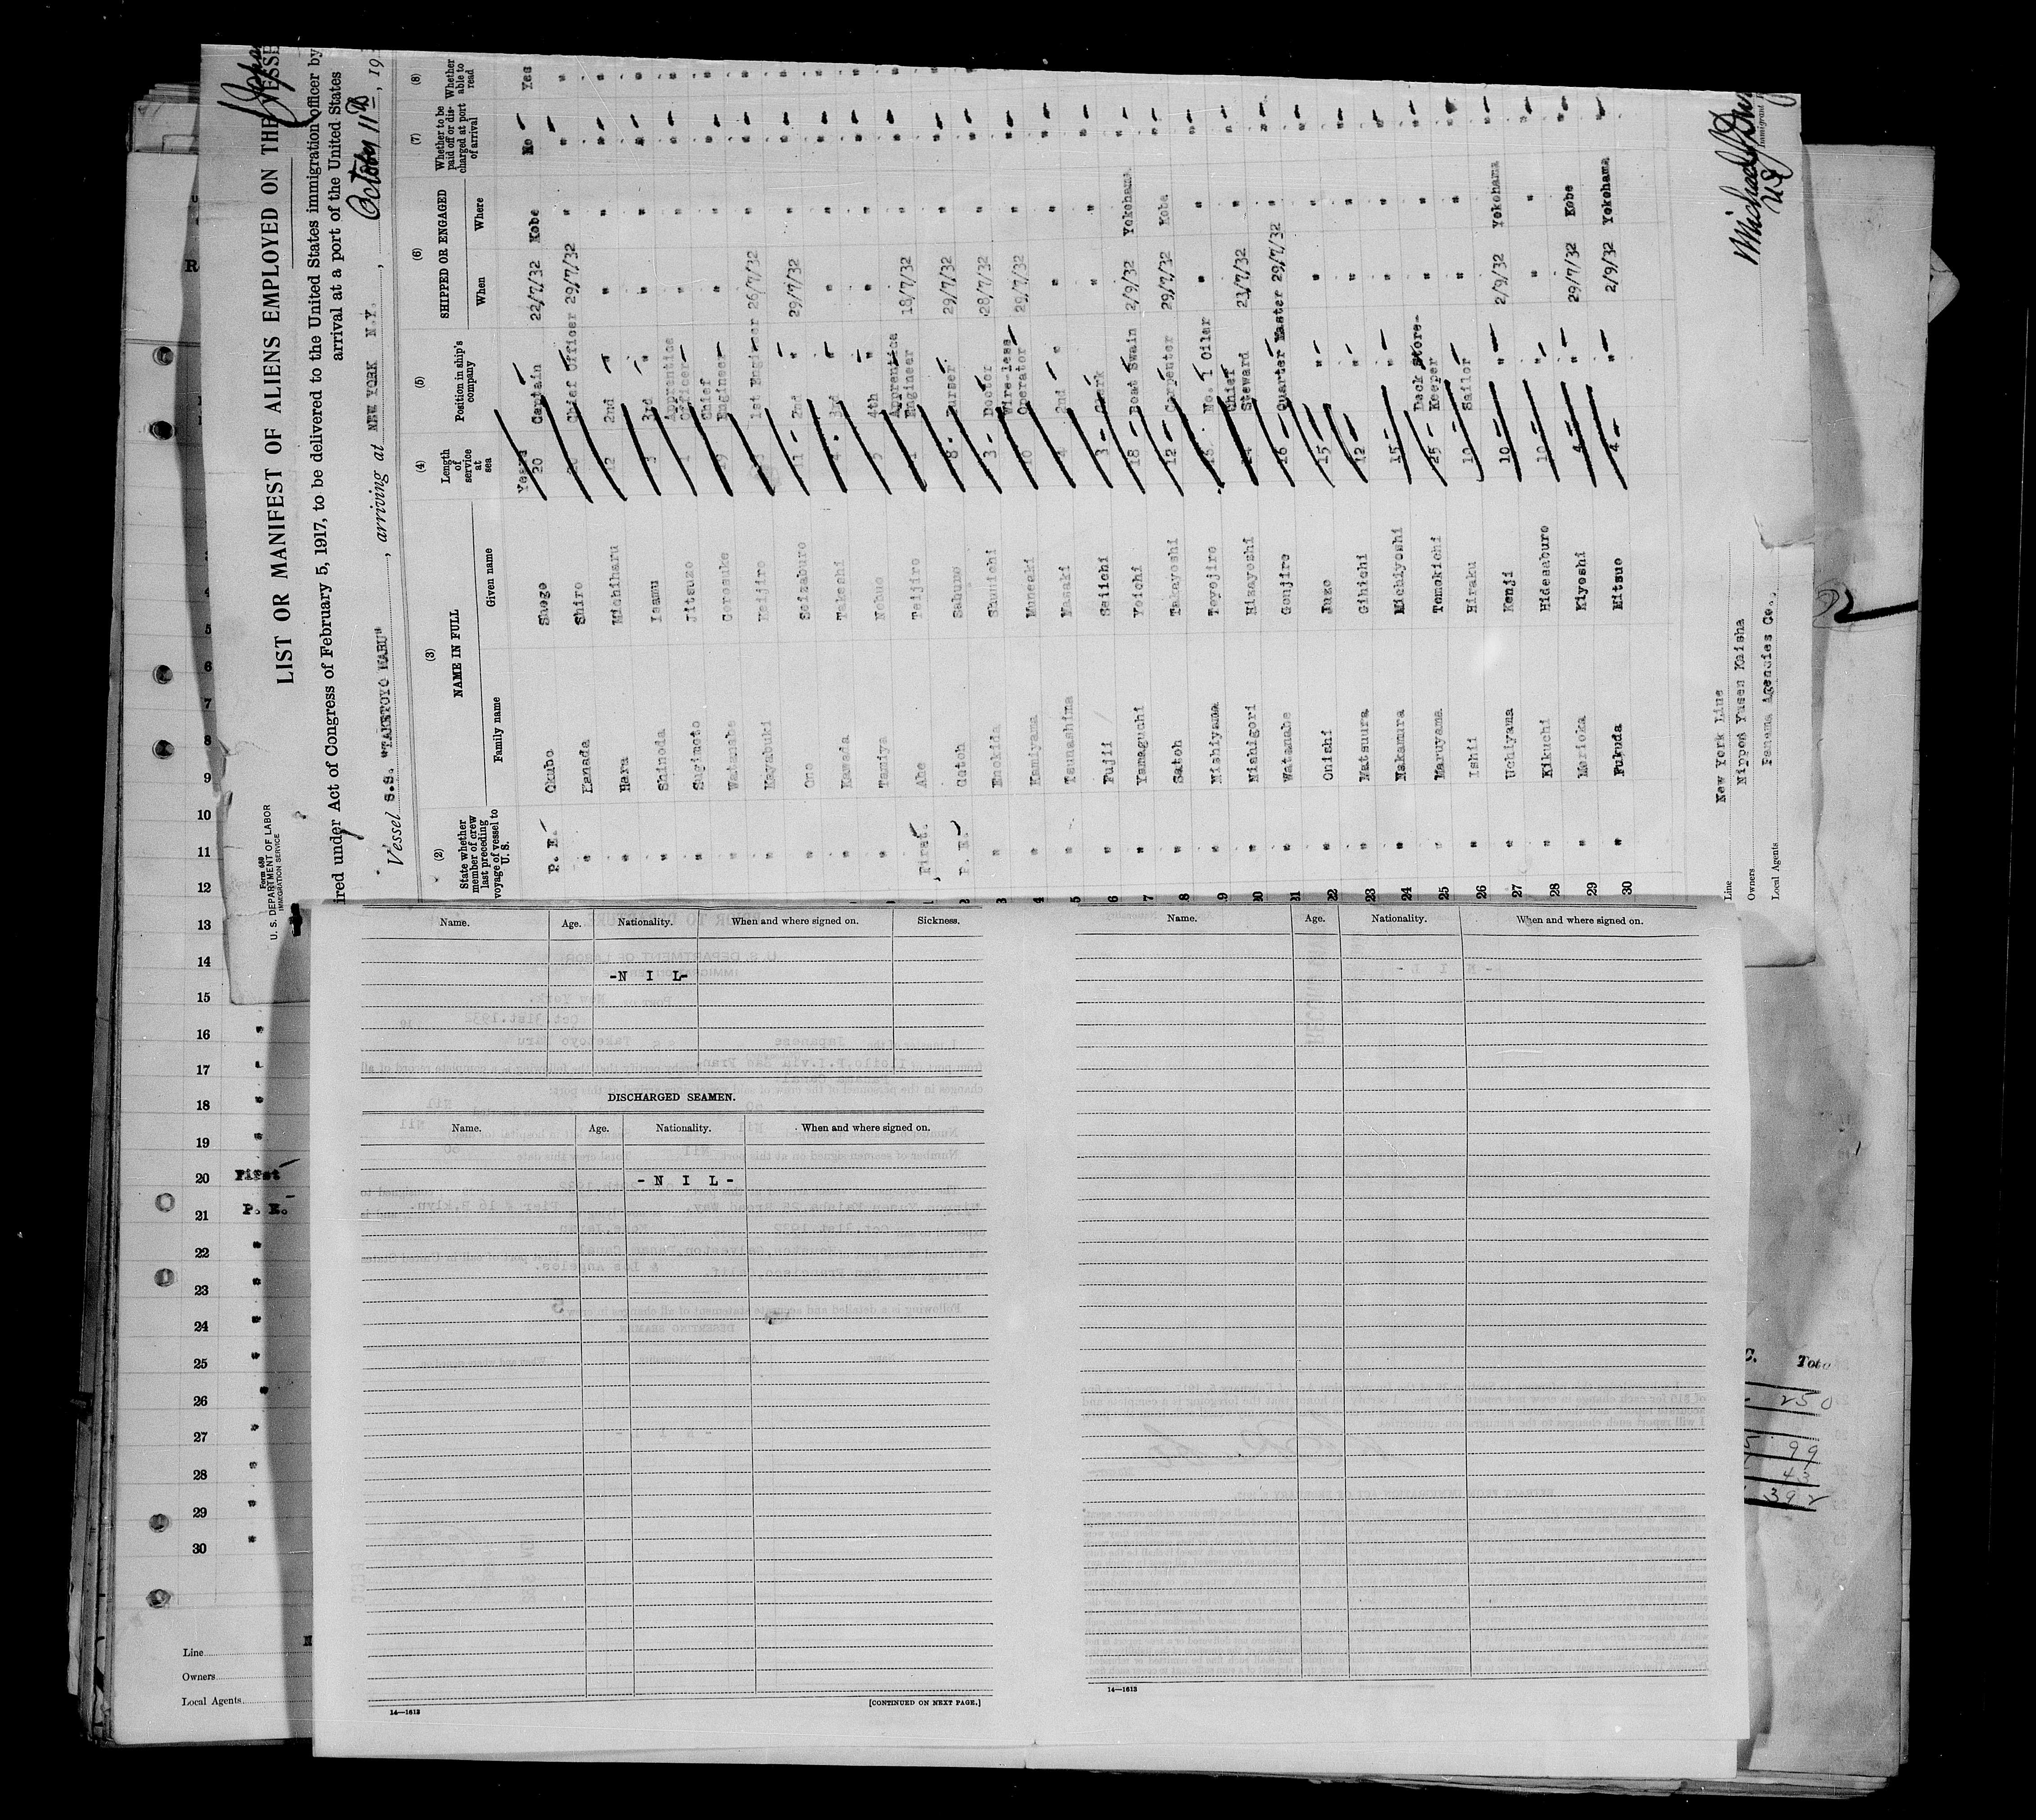 Form 680
U. S. DEPARTMENT OF LABOR
IMMIGRATION SERVICE
LIST OR MANIFEST OF ALIENS EMPLOYED ON THE VESSE
ired under Act of Congress of February 5, 1917, to be delivered to the United States immigration officer by
arrival at a port of the United States
Vessel S.S. "TAKETOYO MARU", arriving at NEW YORK N.Y., October 11th, 19
(2) (3) (4) (5) (6) (7) (8)
State whether member of crew last preceding voyage of vessel to U. S. NAME IN FULL Family name Given name Length of service at sea Position in ship's company SHIPPED OR ENGAGED When Where Whether to be paid off or discharged at port of arrival Whether able to read
Years
P. E. Okubo Shogo 20 Captain 22/7/32 Kobe No Yes
" Kanada Shiro Chief Officer 29/7/32 " " "
" Hara Michiharu 12 2nd " " " " "
" Shinoda Isamu 3rd " " " " "
" Sugimoto Jitsuzo Apprentice Officer " " " "
" Watanabe Gorosuke Chief Engineer " " " "
" Kayabuki Keijiro 1st Engineer 26/7/32 " " "
" Ono Seizaburo 11 2nd " 29/7/32 " " "
" Kawada Takeshi 4 3rd " " " " "
" Tamiya Nobuo 4th " " " " "
First Abe Teijiro Apprentice Engineer 18/7/32 " " "
P. E. Gotoh Saburo 8 Purser 29/7/32 " " "
" Enokida Shunichi 3 Doctor 28/7/32 " "
4 " Kamiyama Muneaki 10 Wire-less Operator 29/7/32 " "
5 " Tsunashima Masaki 2nd " " " "
6 " Fujii Seiichi 3 Clerk " " "
7 " Yamaguchi Yoichi 18 Boat Swain 2/9/32 Yokohama "
8 " Satoh Takayoshi 12 Carpenter 29/7/32 Kobe "
9 " Nishiyama Toyojiro No. 1 Oiler " " "
20 " Nishigori Hisayoshi Chief Steward 21/7/32 " "
21 " Watanabe Gonjiro 16 Quarter Master 29/7/32 " "
22 " Onishi Juzo 15 " " " "
23 " Matsuura Gihichi 12 " " " "
24 " Nakamura Michiyoshi 15 " " " "
25 " Maruyama Tomokichi 25 Deck Store-Keeper " " "
26 " Ishii Hiraku 10 Sailor " " "
27 " Uchiyama Kenji 10 " 2/9/32 Yokohama "
28 " Kikuchi Hidesaburo 10 " " " "
29 " Morioka Kiyoshi 4 " 29/7/32 Kobe "
30 " Fukuda Mitsuo 4 " 2/9/32 Yokohama "
Line New York Line
Owners Nippon Yusen Kaisha
Local Agents Panama Agencies Co.,
Immigrant
4
5
6
7
8
9
10
11
12
13
14
15
16 "
17 "
18 "
19 "
20 First
21 P. E.
22 "
23 "
24 "
25 "
26 "
27 "
28 "
29 "
30 "
Line
Owners
Local Agents
Name. Age. Nationality. When and where signed on. Sickness.
-N I L-
DISCHARGED SEAMEN.
Name. Age. Nationality. When and where signed on.
-N I L-
14—1613
[CONTINUED ON NEXT PAGE.]
Name. Age. Nationality. When and where signed on.
14—1613
C. Tota
250
99
43
392